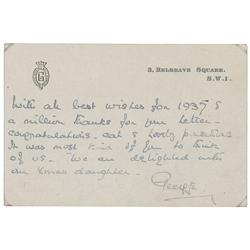 3, BELGRAVE SQUARE,
S.W.1.
With all best wishes for 1937 &
a million thanks for your letter
congratulations, card & lovely
It was most kind of you to think
of us. We are delighted with
our Xmas daughter.
George